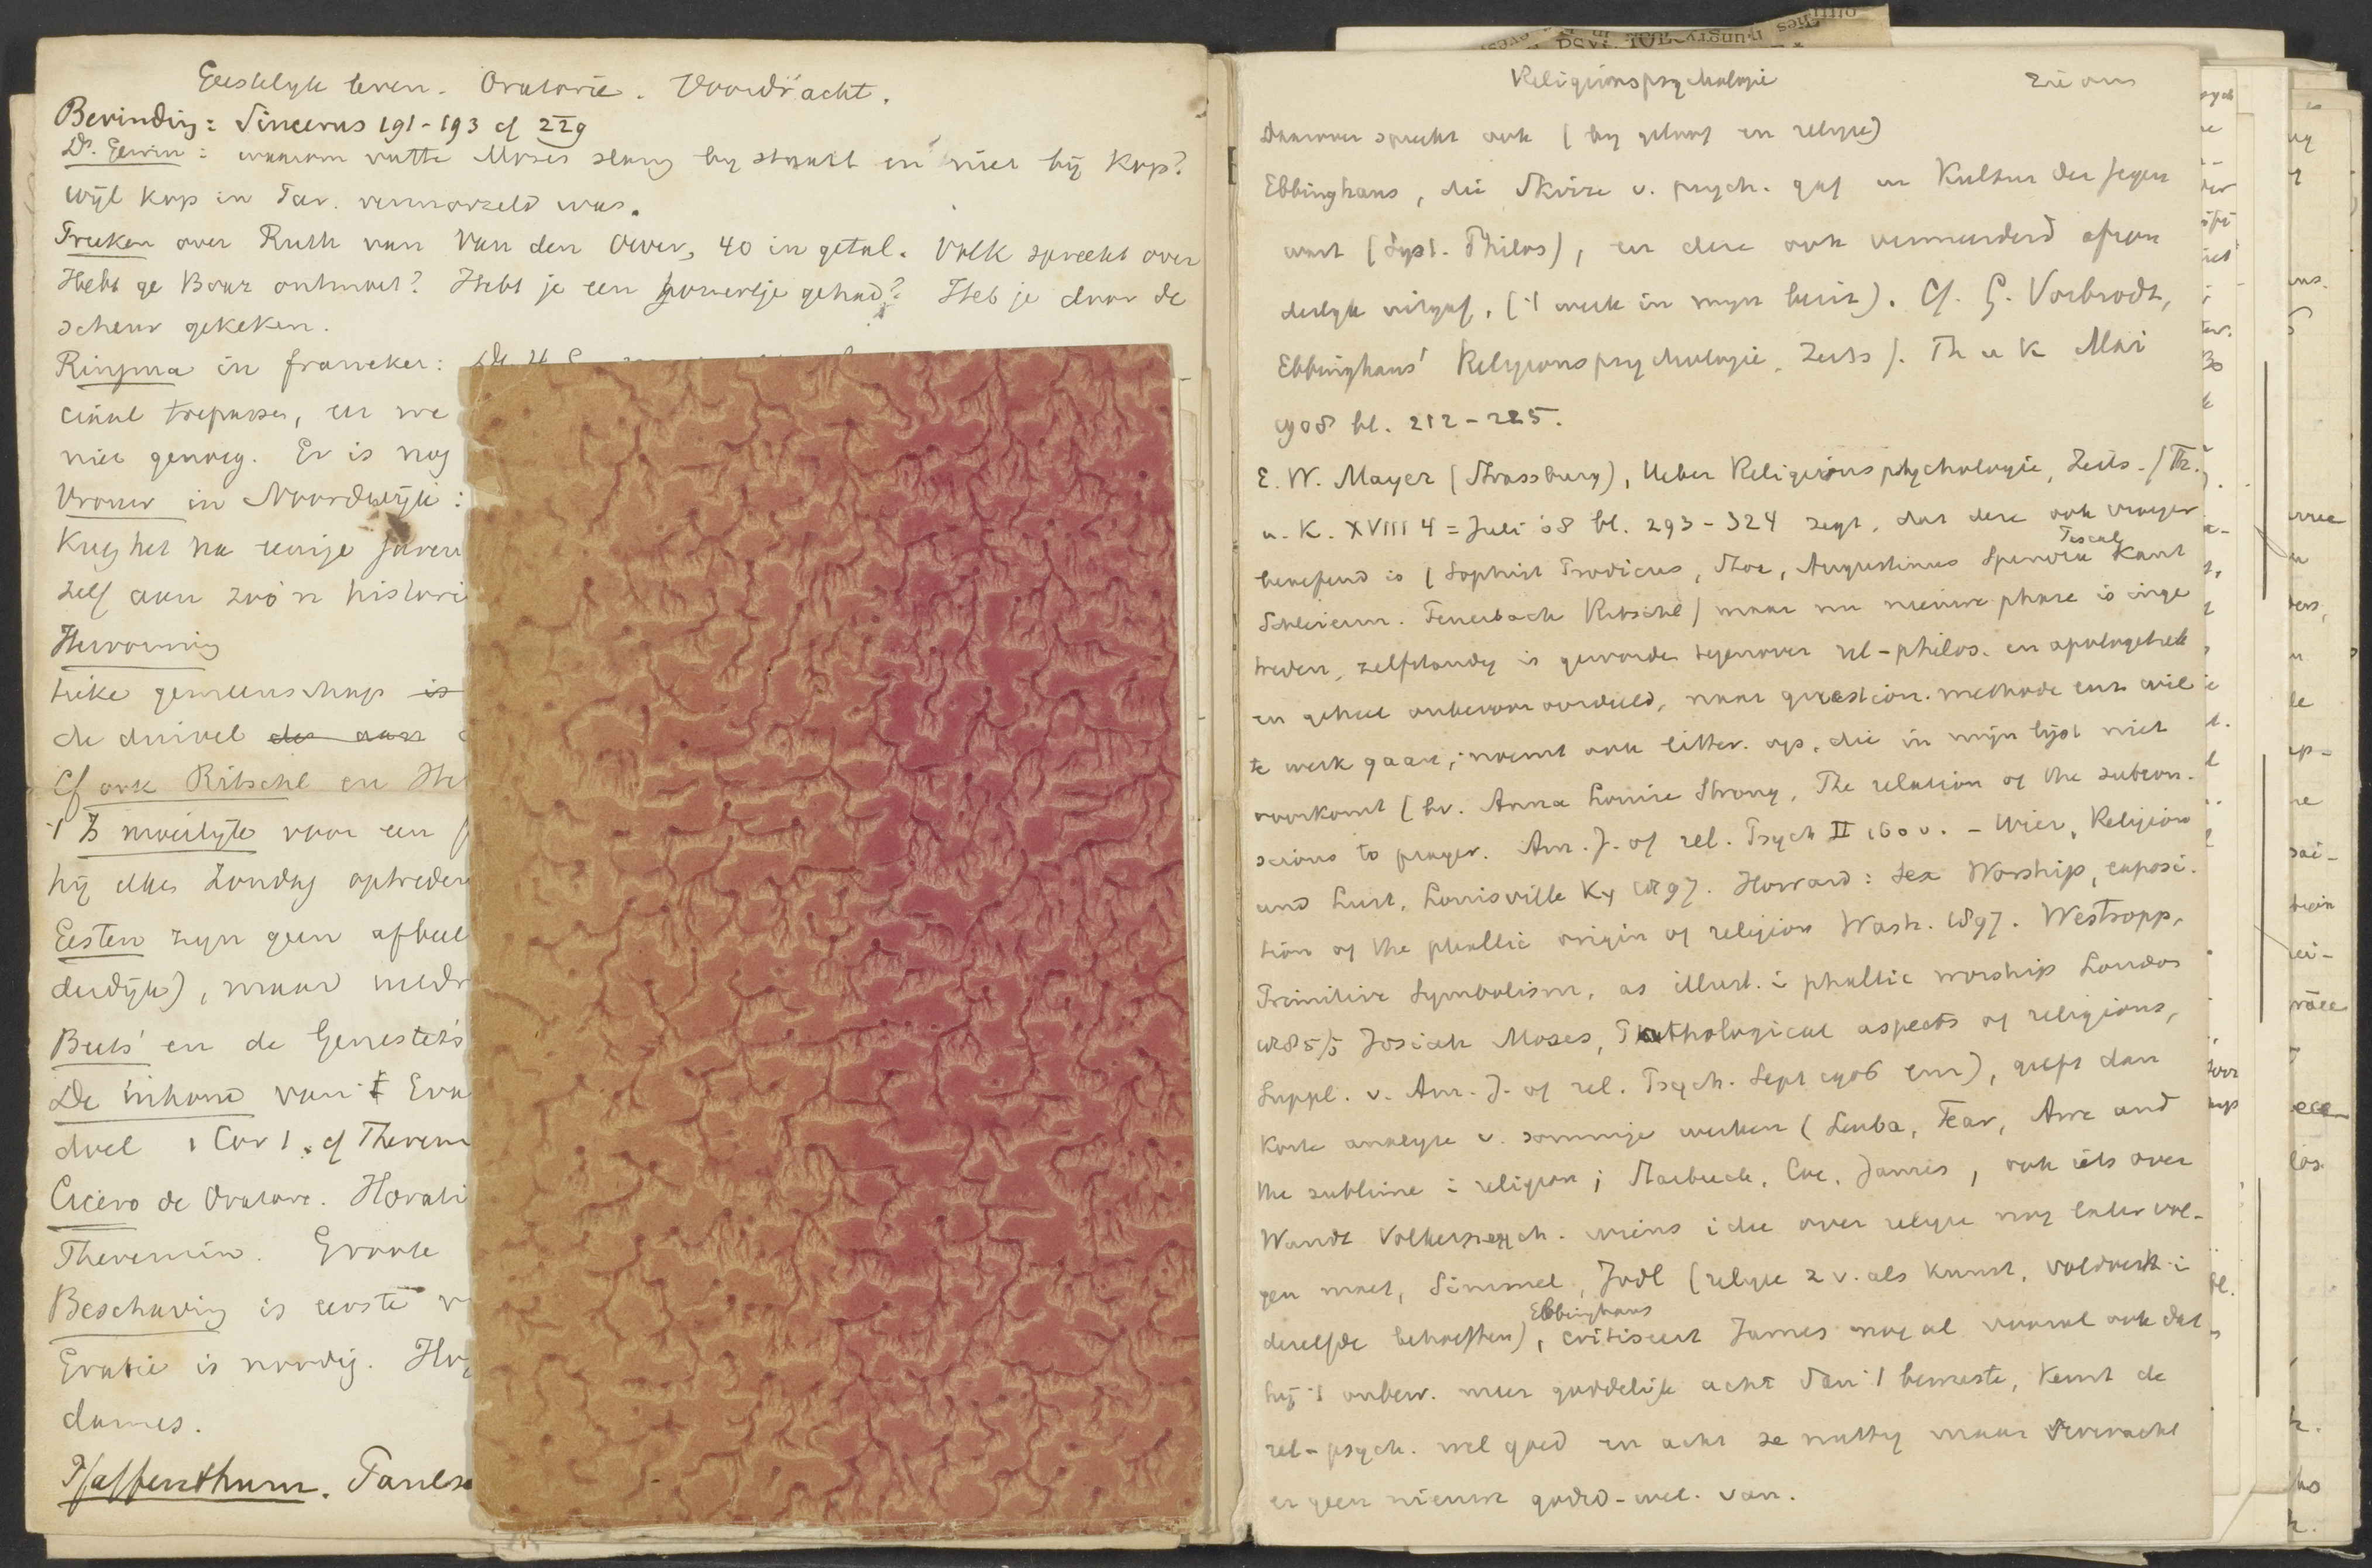 Geestelyk leven. Oratorie. Voordracht.
Bevinding: Sincerus 191-193 cf 229
Ds. Gewin: waarom vatte Mozes slang by staart en niet bij kop?
wijl kop in Par. vermorzeld was.
Preeken over Ruth van Van den Oever, 40 in getal. Volk spreekt over
Hebt ge Boaz ontmoet? Hebt je een korentje gehad? Heb je door de
scheur gekeken.
Ringma in Franeker:
ciaal trepasser, en we
niet genoeg. Er is nog
Vrouw in Noordwijk:
Kreeg het na eenige
zelf aan zoo'n histori
tieke gemeenschap is
de duivel
Cf ook Ritschl en He
't Is moeilyk voor een
hij elken Zondag optreden
Geesten zyn geen afbeel
derdijk), maar
Beets' en de Genestet's
De inhoud van 't Eva
doel 1 Cor 1. cf Therem
Cicero de Oratore. Horati
Theremin. Groote
Beschaving is eerste v
Gratie is noodig.
dames.
Pfaffenthum. Paulse
Religionspsychologie zie ons
Daarover spreekt ook (by geloof en religie)
Ebbinghaus, die Skizze v. psych. gaf in Kultur der Gegen
wart (Syst. Philos), en deze ook vermeerderd afzon
derlyk uitgaf, ('t werk in myn bezit). Cf. G. Vorbrodt,
Ebbinghaus' Religionspsychologie, Zeits f. Th u K Mai
1908 bl. 212-225.
E. W. Mayer (Strassburg), Ueber Religionspsychologie, Zeits. f Th.
u. K. XVIII 4 = Juli '08 bl. 293-324 zegt, dat deze ook vroeger
beoefend is (Sophist Prodicus, Stoa, Augustinus Spinoza Pascal Kant
Schleierm. Feuerbach Ritschl) maar nu nieuwe phase is inge
treden, zelfstandig is geworden tegenover rel-philos. en apologetiek
en geheel onbevooroordeeld, naar question. methode enz wil
te werk gaan; noemt ook litter. op, die in mijn lijst niet
voorkomt (bv. Anna Louise Strong, The relation of the subcon-
scious to prayer. Am. J. of rel. Psych II 160 v. - Wier, Religion
and Lust, Louisville Ky 1897. Howard: Sex Worship, exposi-
tion of the phallic origin of religion Wash. 1897. Westropp,
Primitive Symbolism, as illust. i phallic worship London
1885/5 Josiah Moses, Pathological aspects of religions,
Suppl. v. Am. J. of rel. Psych. Sept 1906 enz), geeft dan
korte analyse v. sommige werken (Leuba, Fear, Awe and
the sublime i religion; Starbuck, Coe, James, ook iets over
Wundt Völkerpsych. wiens idee over religie nog later vol-
gen moet, Simmel, Jodl (religie z v. als kunst, voldoet i
dezelfde behoeften), Ebbinghaus, critiseert James nog al vooral ook dat
hij 't onbew. meer goddelijk acht dan 't bewuste, kent de
rel-psych. wel goed en acht ze nuttig maar verwacht
er geen nieuwe godsd-wet. van.